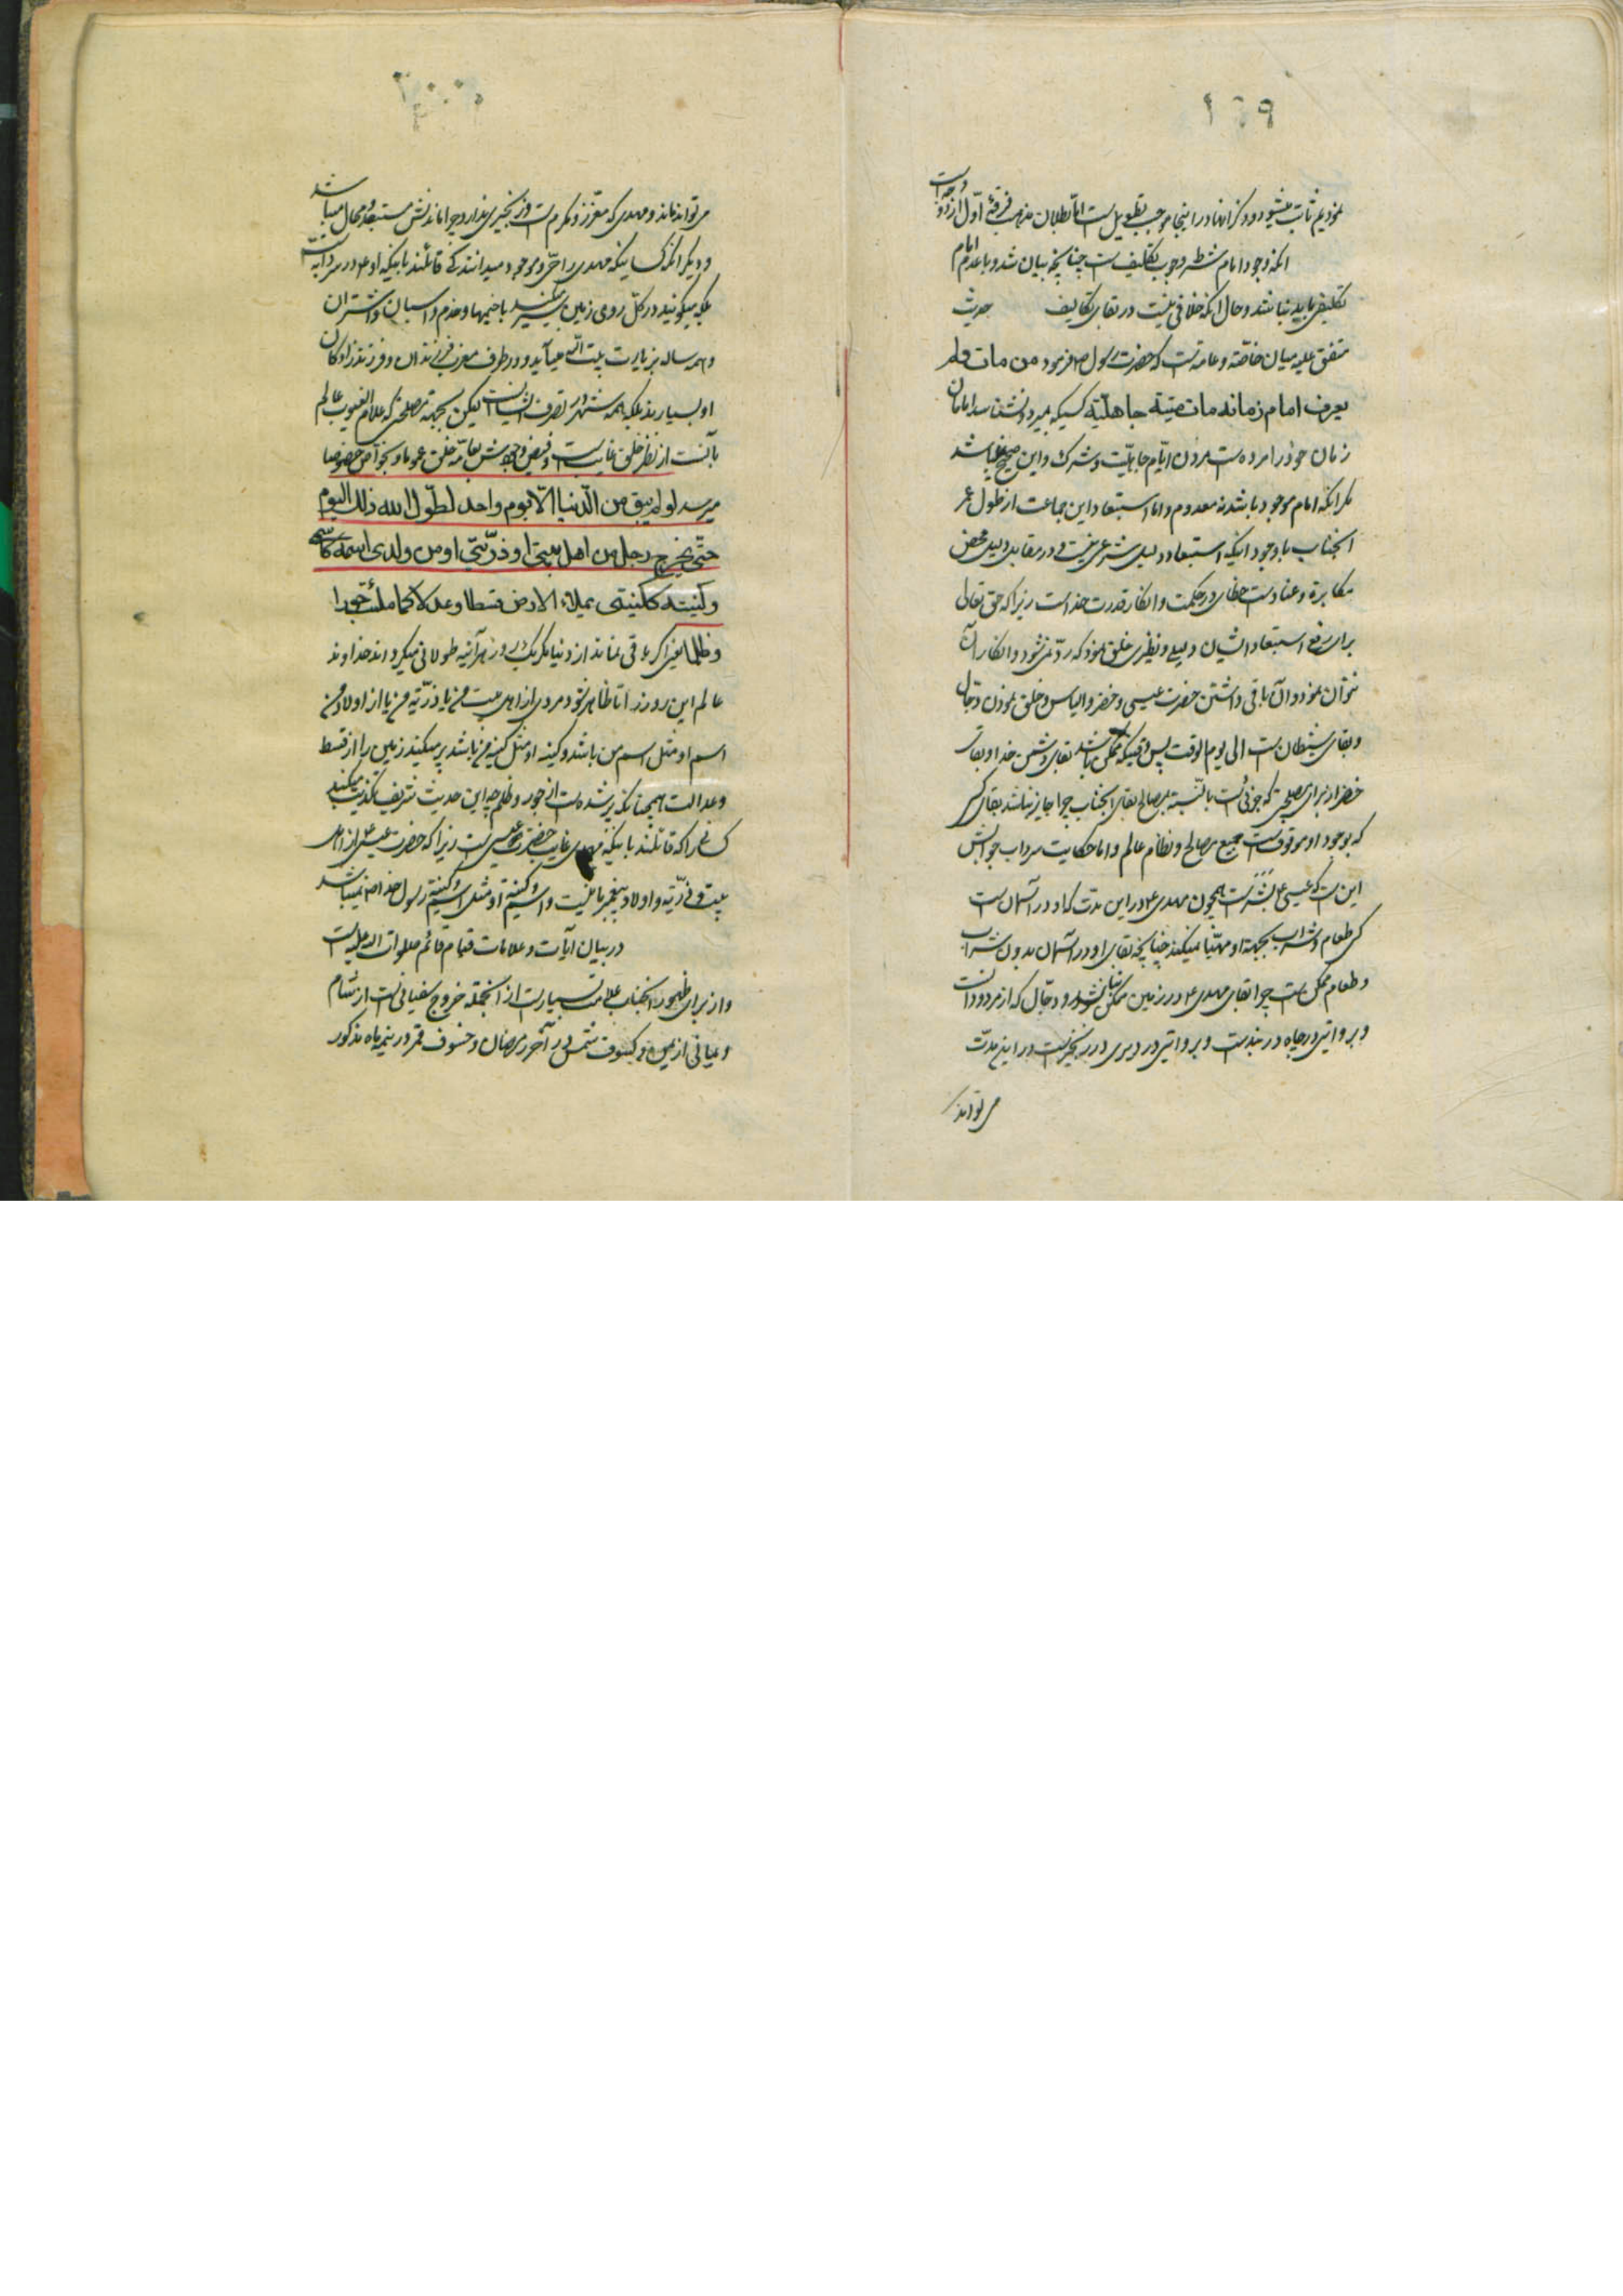 ۱۶۹
نمودیم ثابت میشود و ذکر آنها در اینجا موجب تطویل است اما بطلان مذهب فرقهٔ اول از دو وجه است
آنکه وجود امام شرط وجوب تکلیف است چنانچه بیان شد و با عدم امام
تکلیف باید نباشد و حال آنکه خلافی نیست در بقای تکالیف حدیث
متفق علیه میان خاصّه و عامه است که حضرت رسول ص فرمود من مات و لم
یعرف امام زمانه مات میتة جاهلیّة کسیکه بمیرد و نشناسد امام
زمان خود را مرده است مردن ایّام جاهلیّت و شرک و این صحیح نمیباشد
مگر آنکه امام موجود باشد نه معدوم و اما استبعاد این جماعت از طول عمر
آنجناب با وجود اینکه استبعاد دلیل شرعی نیست و در مقابل دلیل محض
مکابره و عناد است خطای در حکمت و انکار قدرت خداست زیرا که حق تعالی
برای رفع استبعاد ایشان دلیلی و نظیری خلق نمود که ردّ نمی‌شود و انکار آن
نتوان نمود و آن باقی داشتن حضرت عیسی و خضر و الیاس و خلق نمودن دجّال
و بقای شیطان است الی یوم الوقت پس وقتیکه ممکن باشد بقای دشمن خدا و بقای
خضر از برای مصلحتی که جزئی است بالنّسبة بمصالح بقای آنجناب چرا جایز نباشد بقای کسی
که بوجود او موقوفست جمیع مصالح و نظام عالم و اما حکایت سرداب جوابش
این است که عیسی ع بشر است همچون مهدی ع در این مدت که او در آسمان است
کی طعام و شراب بجهة او مهیّا میکند چنانچه بقای او در آسمان بدون شراب
و طعام ممکن است چرا بقای مهدی ع در زمین ممکن نباشد و دجّال که از مردودان است
و بروایتی در چاه در بند است و بروایتی در دیری در زنجیر است در این مدّت
می تواند
۲۰۰
می تواند ماند و مهدی که معزّز و مکرم است و زنجیری ندارد چرا ماندنش مستبعد و محال میباشد
و دیگر آنکه کسانیکه مهدی را حیّ و موجود میدانند کی قائلند باینکه او ع در سردابه است
بلکه میگویند در کل روی زمین سیر میکند با خیمها و خدم و اسبان و اشتران
و همه ساله بزیارت بیت الله میآید و در طرف مغرب فرزندان و فرزندزادگان
او بسیارند بلکه همه شهرها در تصرف ایشان است لیکن بجهة مصلحتی که علام الغیوب عالم
بآنست از نظر خلق غایب است و فیض وجودش بعامّه خلق عموما و بخواصّ خصوصا
میرسد لو لم یبق من الدّنیا الّا یوم واحد لطوّل الله ذلک الیوم
حتّی یخرج رجل من اهل بیتی او ذرّیّتی او من ولدی اسمه کاسمی
و کنیته ککنیتی یملاء الارض قسطا و عدلا کما ملئت جورا
و ظلما یعنی اگر باقی نماند از دنیا مگر یک روز هرآینه طولانی میگرداند خداوند
عالم این روز را تا ظاهر شود مردی از اهل بیت من یا ذرّیّه من یا از اولاد من
اسم او مثل اسم من باشد و کنیه او مثل کنیه من باشد پر میکند زمین را از قسط
و عدالت همچنانکه پر شده است از جور و ظلم چه این حدیث شریف تکذیب میکند
کسانی را که قائلند باینکه مهدی غایب حضرت عیسی است زیرا که حضرت عیسی از اهل
بیت و ذرّیّه و اولاد پیغمبر ما نیست و اسم و کنیة او مثل اسم و کنیة رسول خدا ص نمیباشد
در بیان آیات و علامات قیام قائم صلوات الله علیه است
و از برای ظهور آنجناب علامت بسیار است از آنجمله خروج سفیانی است از شام
و یمانی از یمن و کسوف شمس در آخر رمضان و خسوف قمر در نیمه ماه مذکور